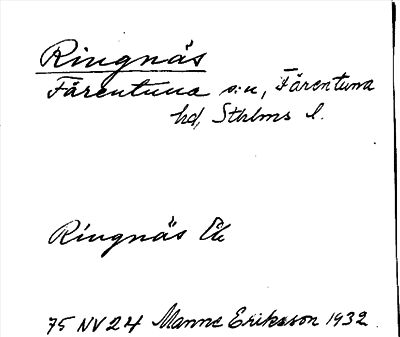 Ringnäs
Färentuna s:n, Färentuna
hd, Sthlms l.
Ringnäs
75 NV 24 Manne Eriksson 1932